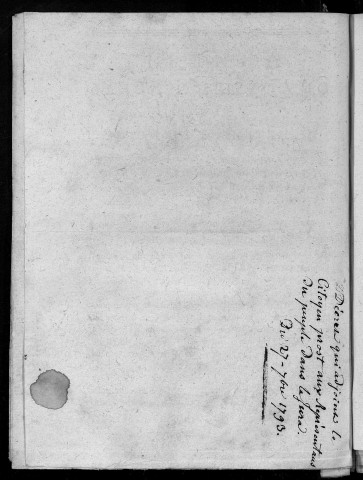 Décret qui adjoint le
Citoyen prost aux Représentans
du peuple dans le Jura.
Du 27 - 7bre 1793.